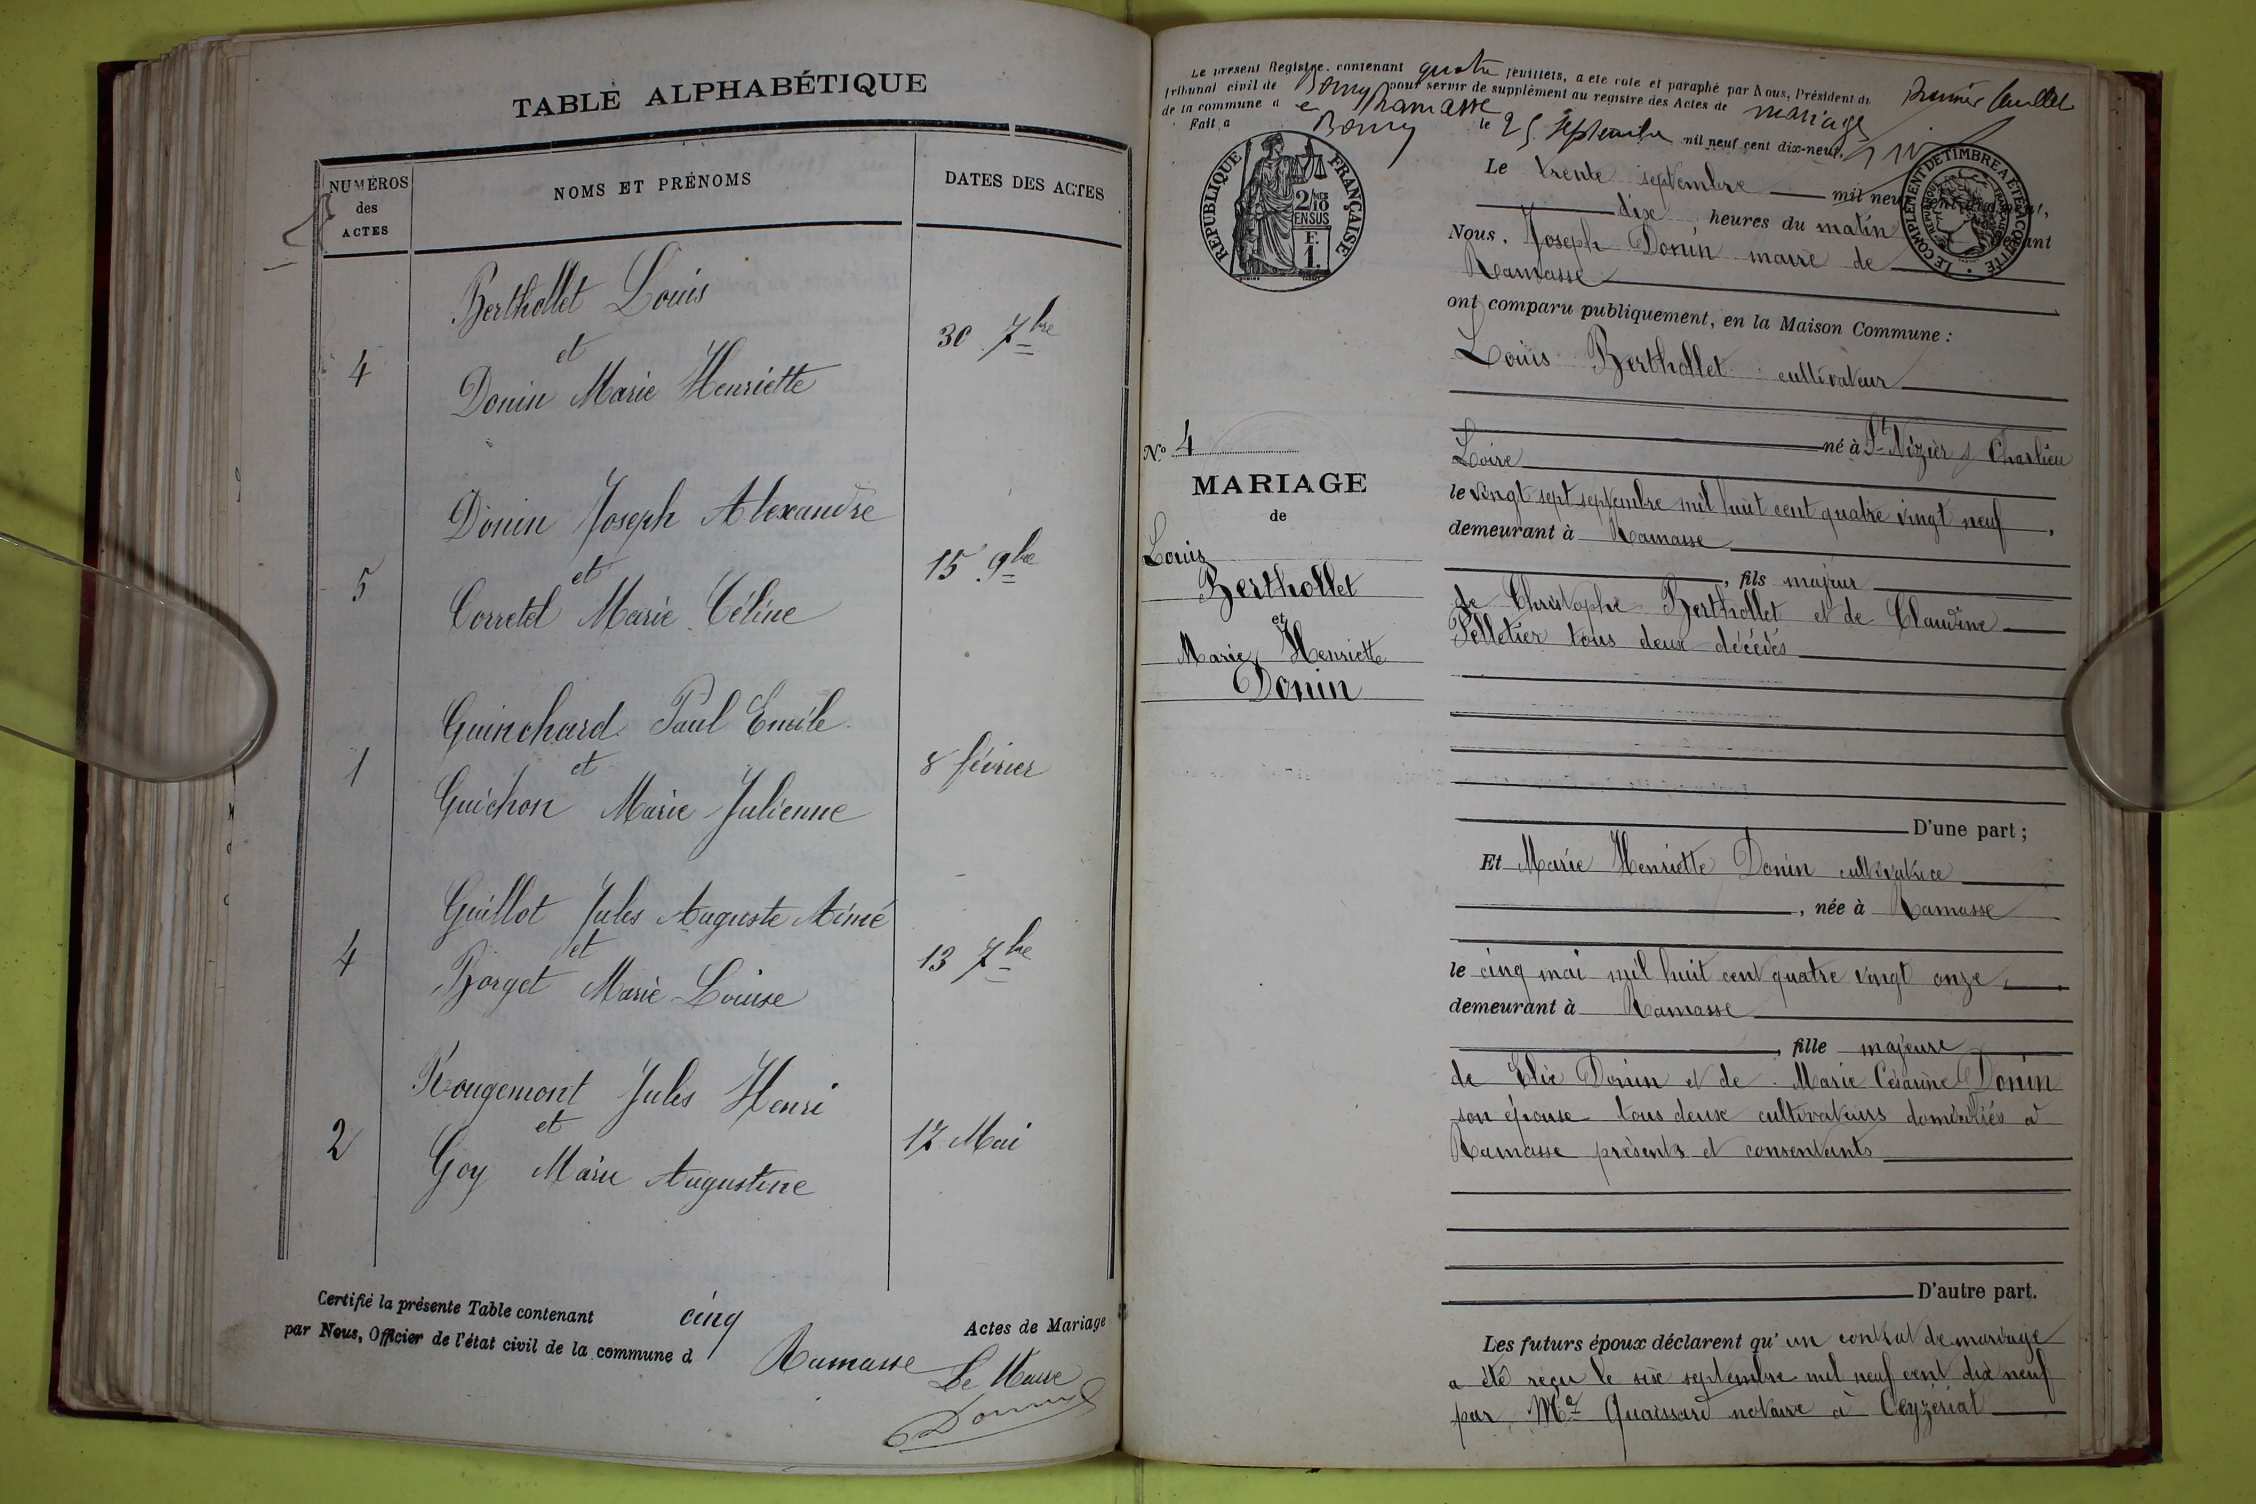 TABLE ALPHABÉTIQUE
NUMÉROS
des
ACTES
NOMS ET PRÉNOMS
DATES DES ACTES
Berthollet Louis
4
et
30 7bre
Donin Marie Henriette
Donin Joseph Alexandre
5
et
15 9bre
Corretel Marie Céline
Guinchard Paul Emile
1
et
8 février
Guichon Marie Julienne
Guillot Jules Auguste Aimé
4
et
13 7bre
Borget Marie Louise
Rougemont Jules Henri
2
et
17 Mai
Goy Marie Augustine
Certifié la présente Table contenant cinq Actes de Mariage
par Nous, Officier de l'état civil de la commune d Ramasse
Le Maire
Donin
Le présent Registre, contenant quatre feuillets, a été coté et paraphé par Nous, Président du
tribunal civil de Bourg pour servir de supplément au registre des Actes de mariage
de la commune d e Ramasse
Fait à Bourg le 25 septembre mil neuf cent dix-neuf.
premier feuillet
RÉPUBLIQUE FRANÇAISE
2/10
EN SUS
F.
1.
LE COMPLÉMENT DE TIMBRE A ÉTÉ ACQUITTÉ
Le trente septembre mil neuf
dix heures du matin
Nous, Joseph Donin maire de
Ramasse
ont comparu publiquement, en la Maison Commune :
Louis Berthollet cultivateur
né à St Nizier s/ Charlieu
Loire
le vingt sept septembre mil huit cent quatre vingt neuf,
demeurant à Ramasse
, fils majeur
de Christophe Berthollet et de Claudine
Pelletier tous deux décédés
D'une part ;
Nº 4
MARIAGE
de
Louis
Berthollet
et
Marie Henriette
Donin
Et Marie Henriette Donin cultivatrice
, née à Ramasse
le cinq mai mil huit cent quatre vingt onze,
demeurant à Ramasse
, fille majeure
de Elie Donin et de Marie Césarine Donin
son épouse tous deux cultivateurs domiciliés à
Ramasse présents et consentants
D'autre part.
Les futurs époux déclarent qu'un contrat de mariage
a été reçu le six septembre mil neuf cent dix neuf
par Me Quaissard notaire à Ceyzériat